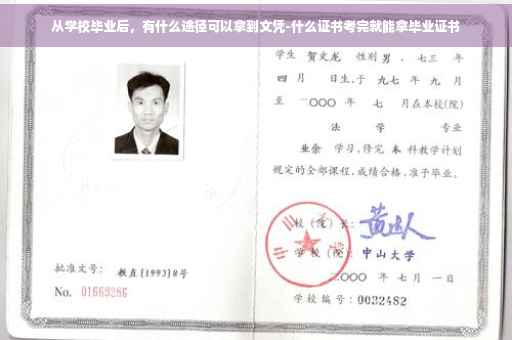 从学校毕业后，有什么途径可以拿到文凭-什么证书考完就能拿毕业证书
学生 贺文龙 性别 男 ，七三 年
四 月 日生，于 九七 年 九 月
至 二〇〇〇 年 七 月在本校(院)
法 学 专业
业余 学习，修完 本 科教学计划
规定的全部课程，成绩合格，准予毕业。
校 (院) 长：
学 校 (院)： 中山大学
二〇〇〇 年 七 月 一 日
批准文号： 教直[1993]8号
No. 01663286
学校编号：0032482